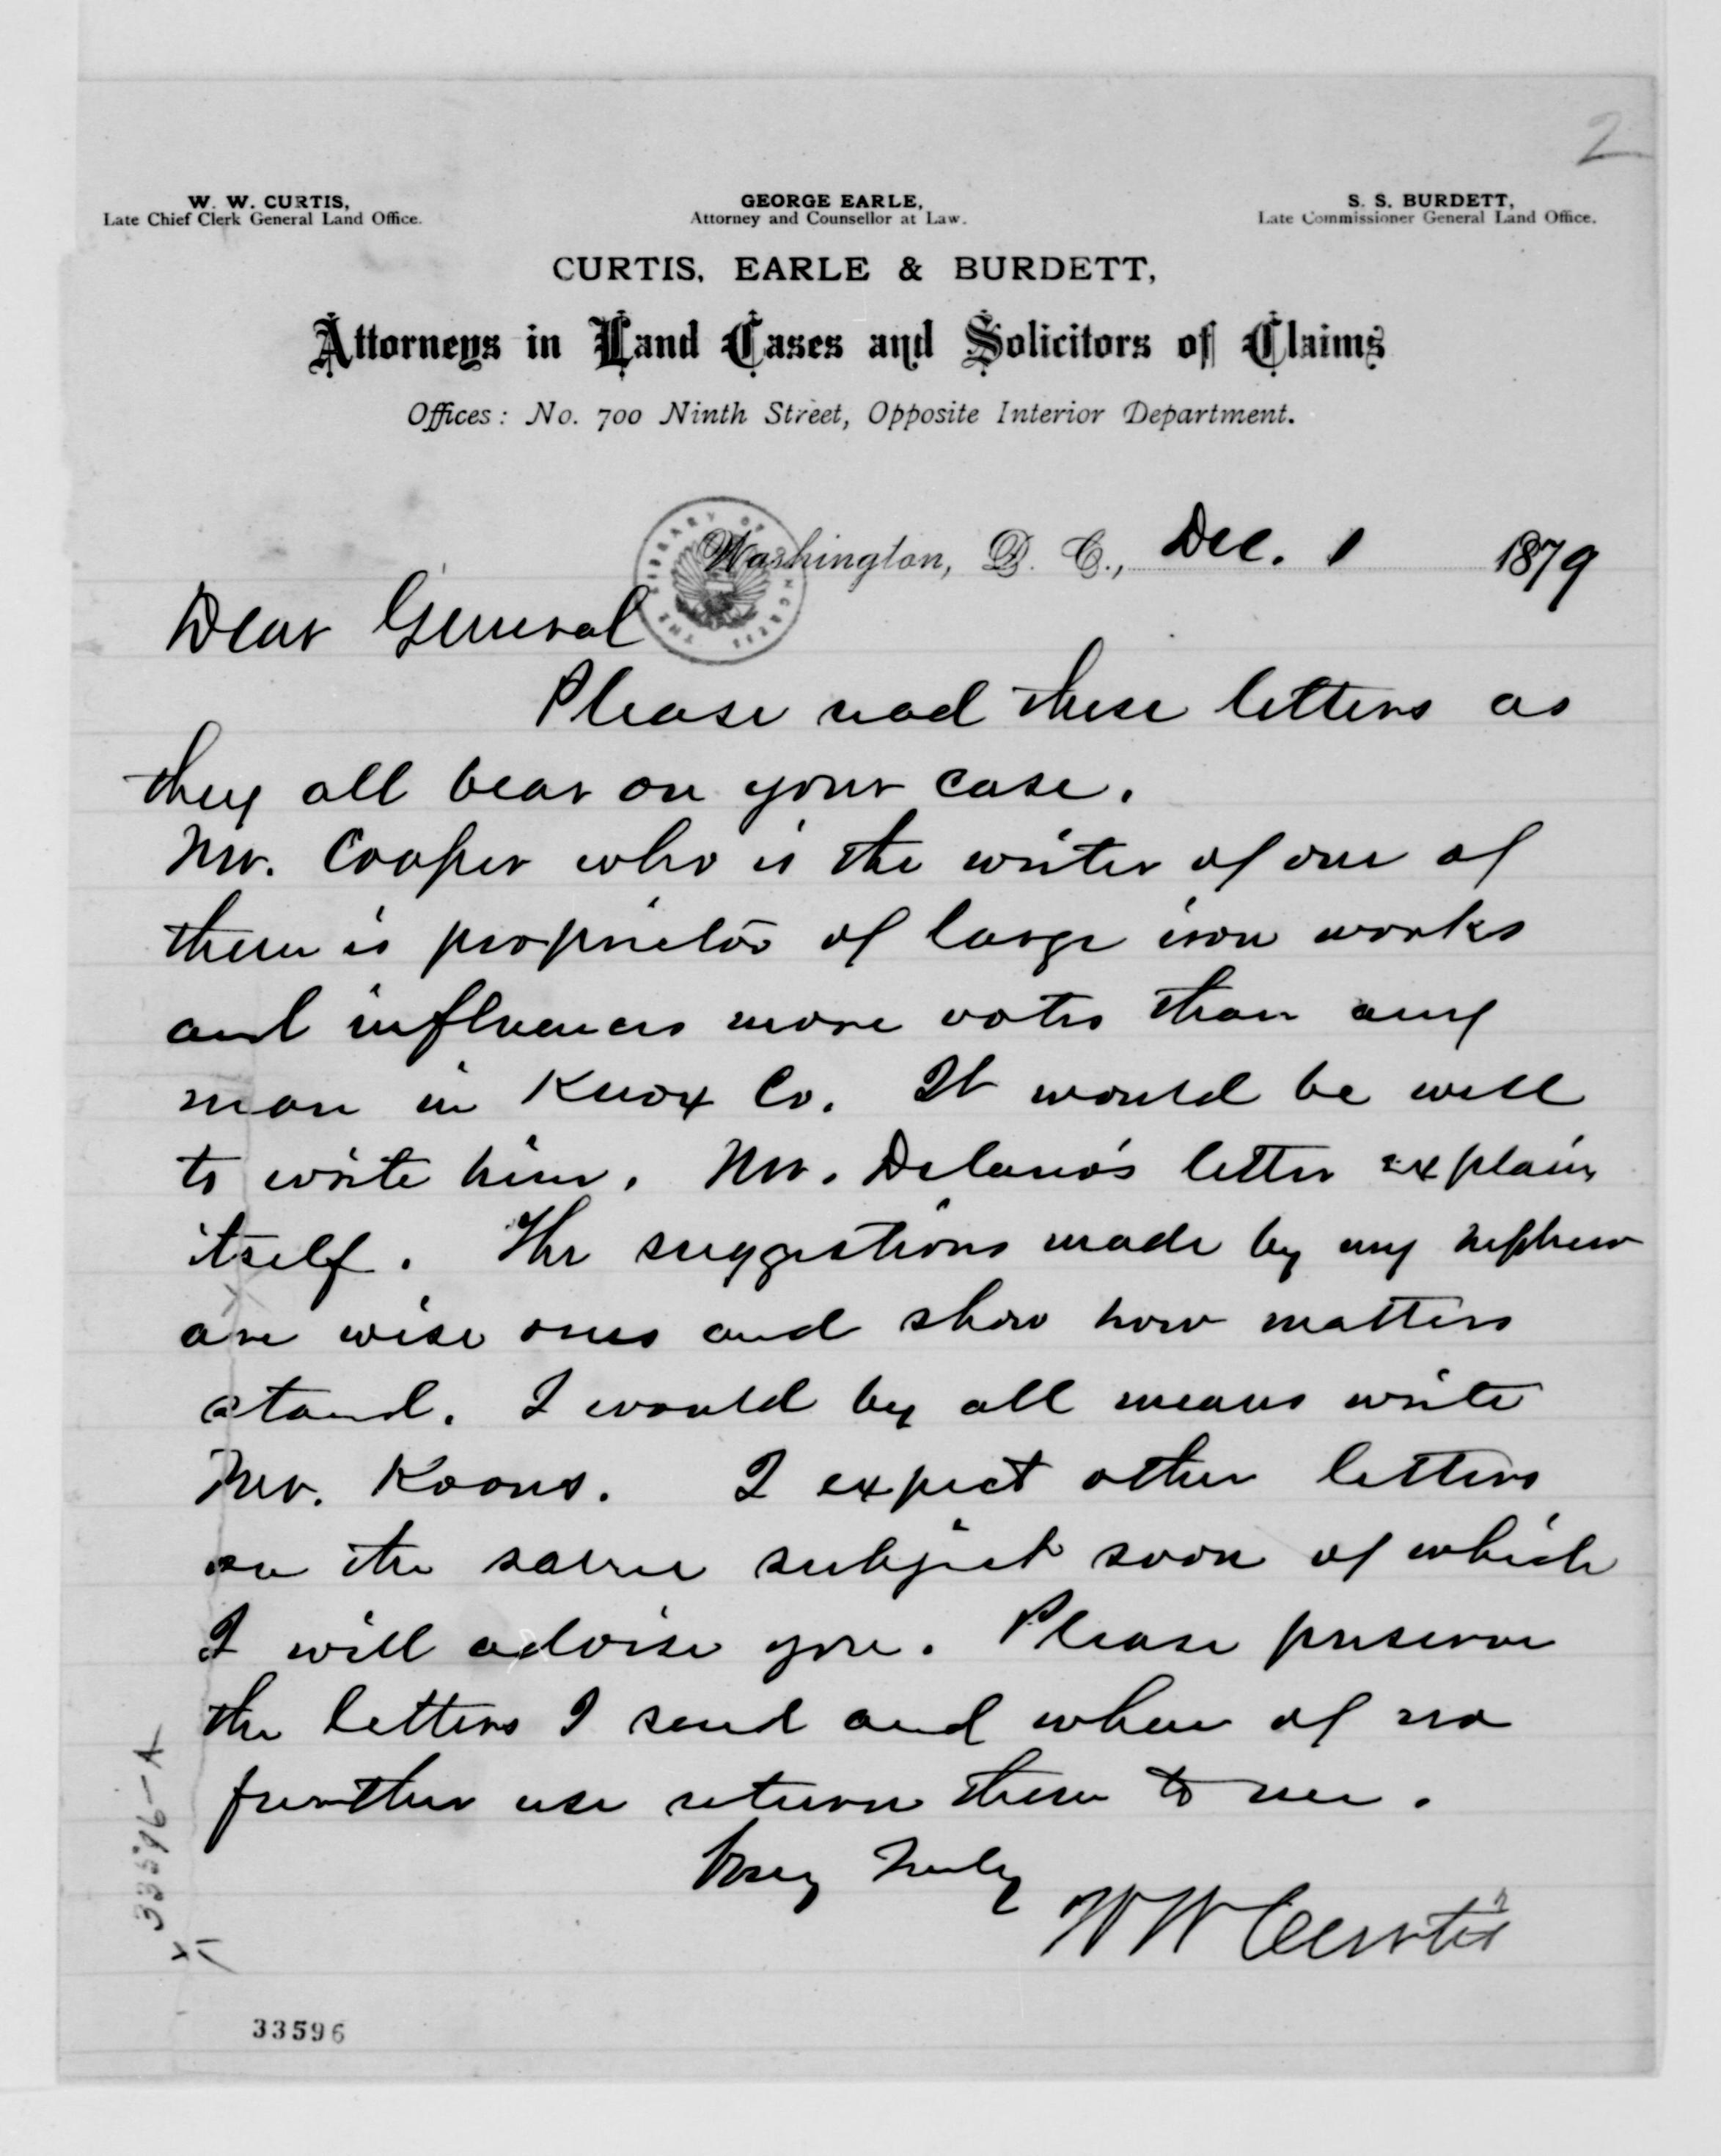 2
W. W. CURTIS,
Late Chief Clerk General Land Office.
GEORGE EARLE,
Attorney and Counsellor at Law.
S. S. BURDETT,
Late Commissioner General Land Office.
CURTIS, EARLE & BURDETT,
Attorneys in Land Cases and Solicitors of Claims
Offices: No. 700 Ninth Street, Opposite Interior Department.
Washington, D. C., Dec. 1 1879
THE LIBRARY OF CONGRESS
Dear General
Please read these letters as
they all bear on your case.
Mr. Cooper who is the writer of one of
them is proprietor of large iron works
and influences more votes than any
man in Knox Co. It would be well
to write him. Mr. Delano's letter explains
itself. The suggestions made by my nephew
are wise ones and show how matters
stand. I would by all means write
Mr. Koons. I expect other letters
on the same subject soon of which
I will advise you. Please preserve
the letters I send and when of no
further use return them to me.
Very Truly
W W Curtis
33596-A
33596